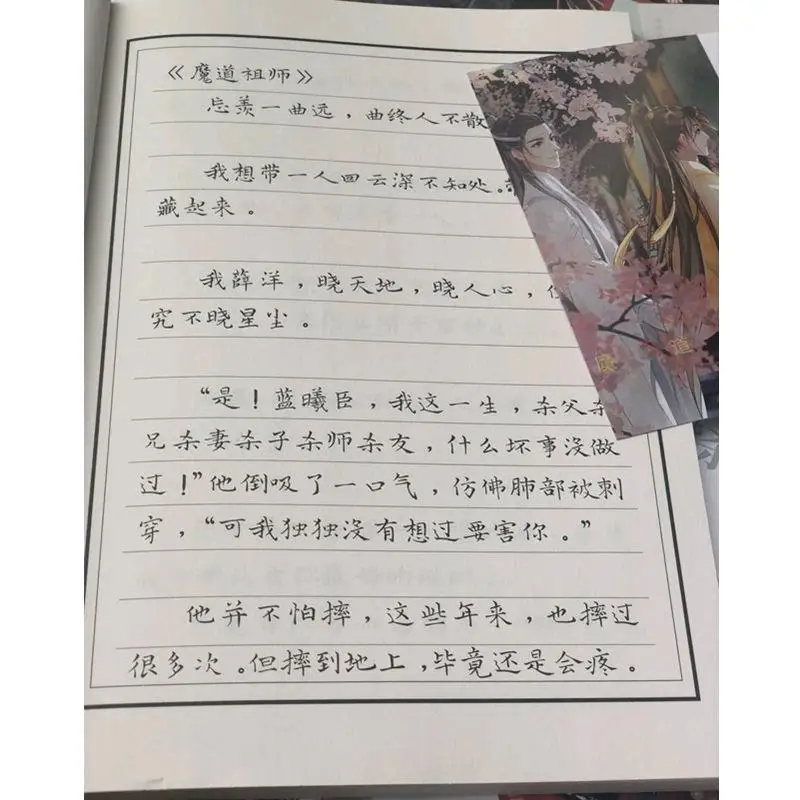 《魔道祖师》
忘羡一曲远，曲终人不散
我想带一人回云深不知处。
藏起来。
我薛洋，晓天地，晓人心，
究不晓星尘。
“是！蓝曦臣，我这一生，杀父杀
兄杀妻杀子杀师杀友，什么坏事没做
过！”他倒吸了一口气，仿佛肺部被刺
穿，“可我独独没有想过要害你。”
他并不怕摔，这些年来，也摔过
很多次。但摔到地上，毕竟还是会疼。
魔 道